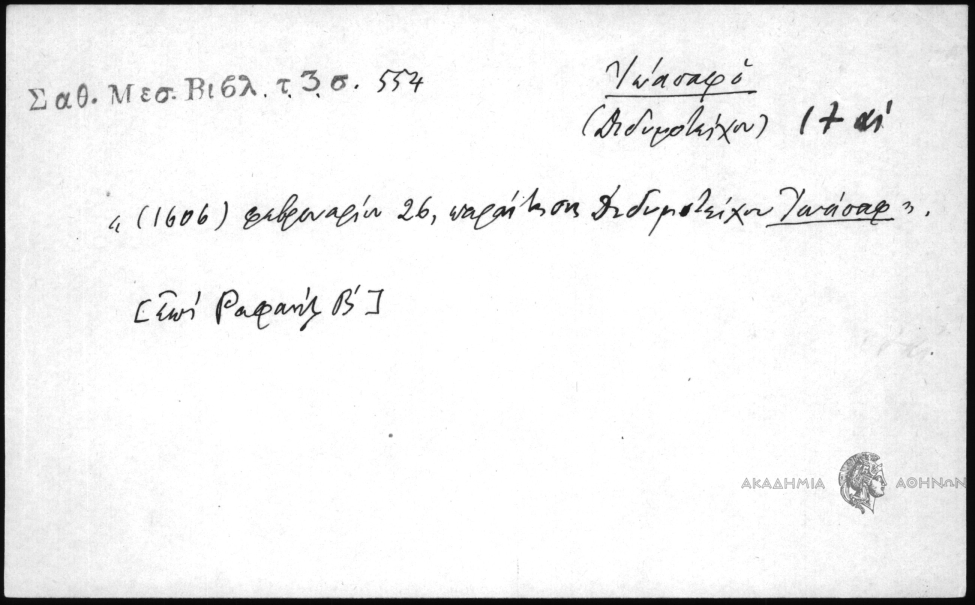 Σαθ. Μεσ. Βιβλ. τ. 3. σ. 554
Ἰωάσαφ ὁ
(Διδυμοτείχου) 17 αἰ
« (1606) φεβρουαρίου 26, παραίτησις Διδυμοτείχου Ἰωάσαφ ».
[Ἐπὶ Ραφαὴλ Β′]
ΑΚΑΔΗΜΙΑ ΑΘΗΝΩΝ